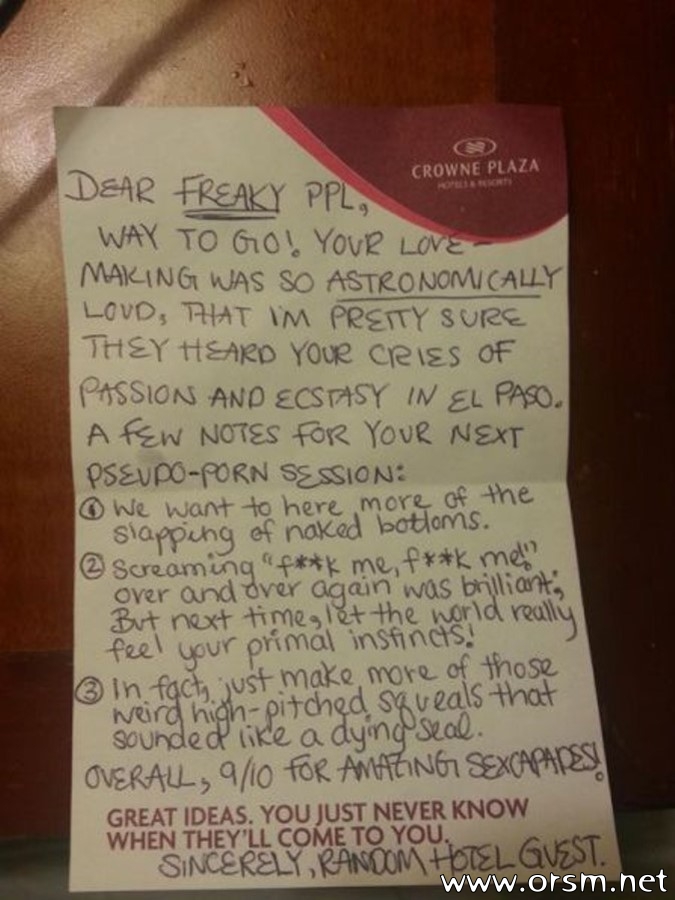 CROWNE PLAZA
HOTELS & RESORTS
DEAR FREAKY PPL,
WAY TO GO! YOUR LOVE-
MAKING WAS SO ASTRONOMICALLY
LOUD, THAT I'M PRETTY SURE
THEY HEARD YOUR CRIES OF
PASSION AND ECSTASY IN EL PASO.
A FEW NOTES FOR YOUR NEXT
PSEUDO-PORN SESSION:
① We want to here more of the
slapping of naked bottoms.
② Screaming "f**k me, f**k me!"
over and over again was brilliant;
But next time, let the world really
feel your primal instincts!
③ In fact, just make more of those
weird high-pitched squeals that
sounded like a dying seal.
OVERALL, 9/10 FOR AMAZING SEXCAPADES!
GREAT IDEAS. YOU JUST NEVER KNOW
WHEN THEY'LL COME TO YOU.
SINCERELY, RANDOM HOTEL GUEST.
www.orsm.net